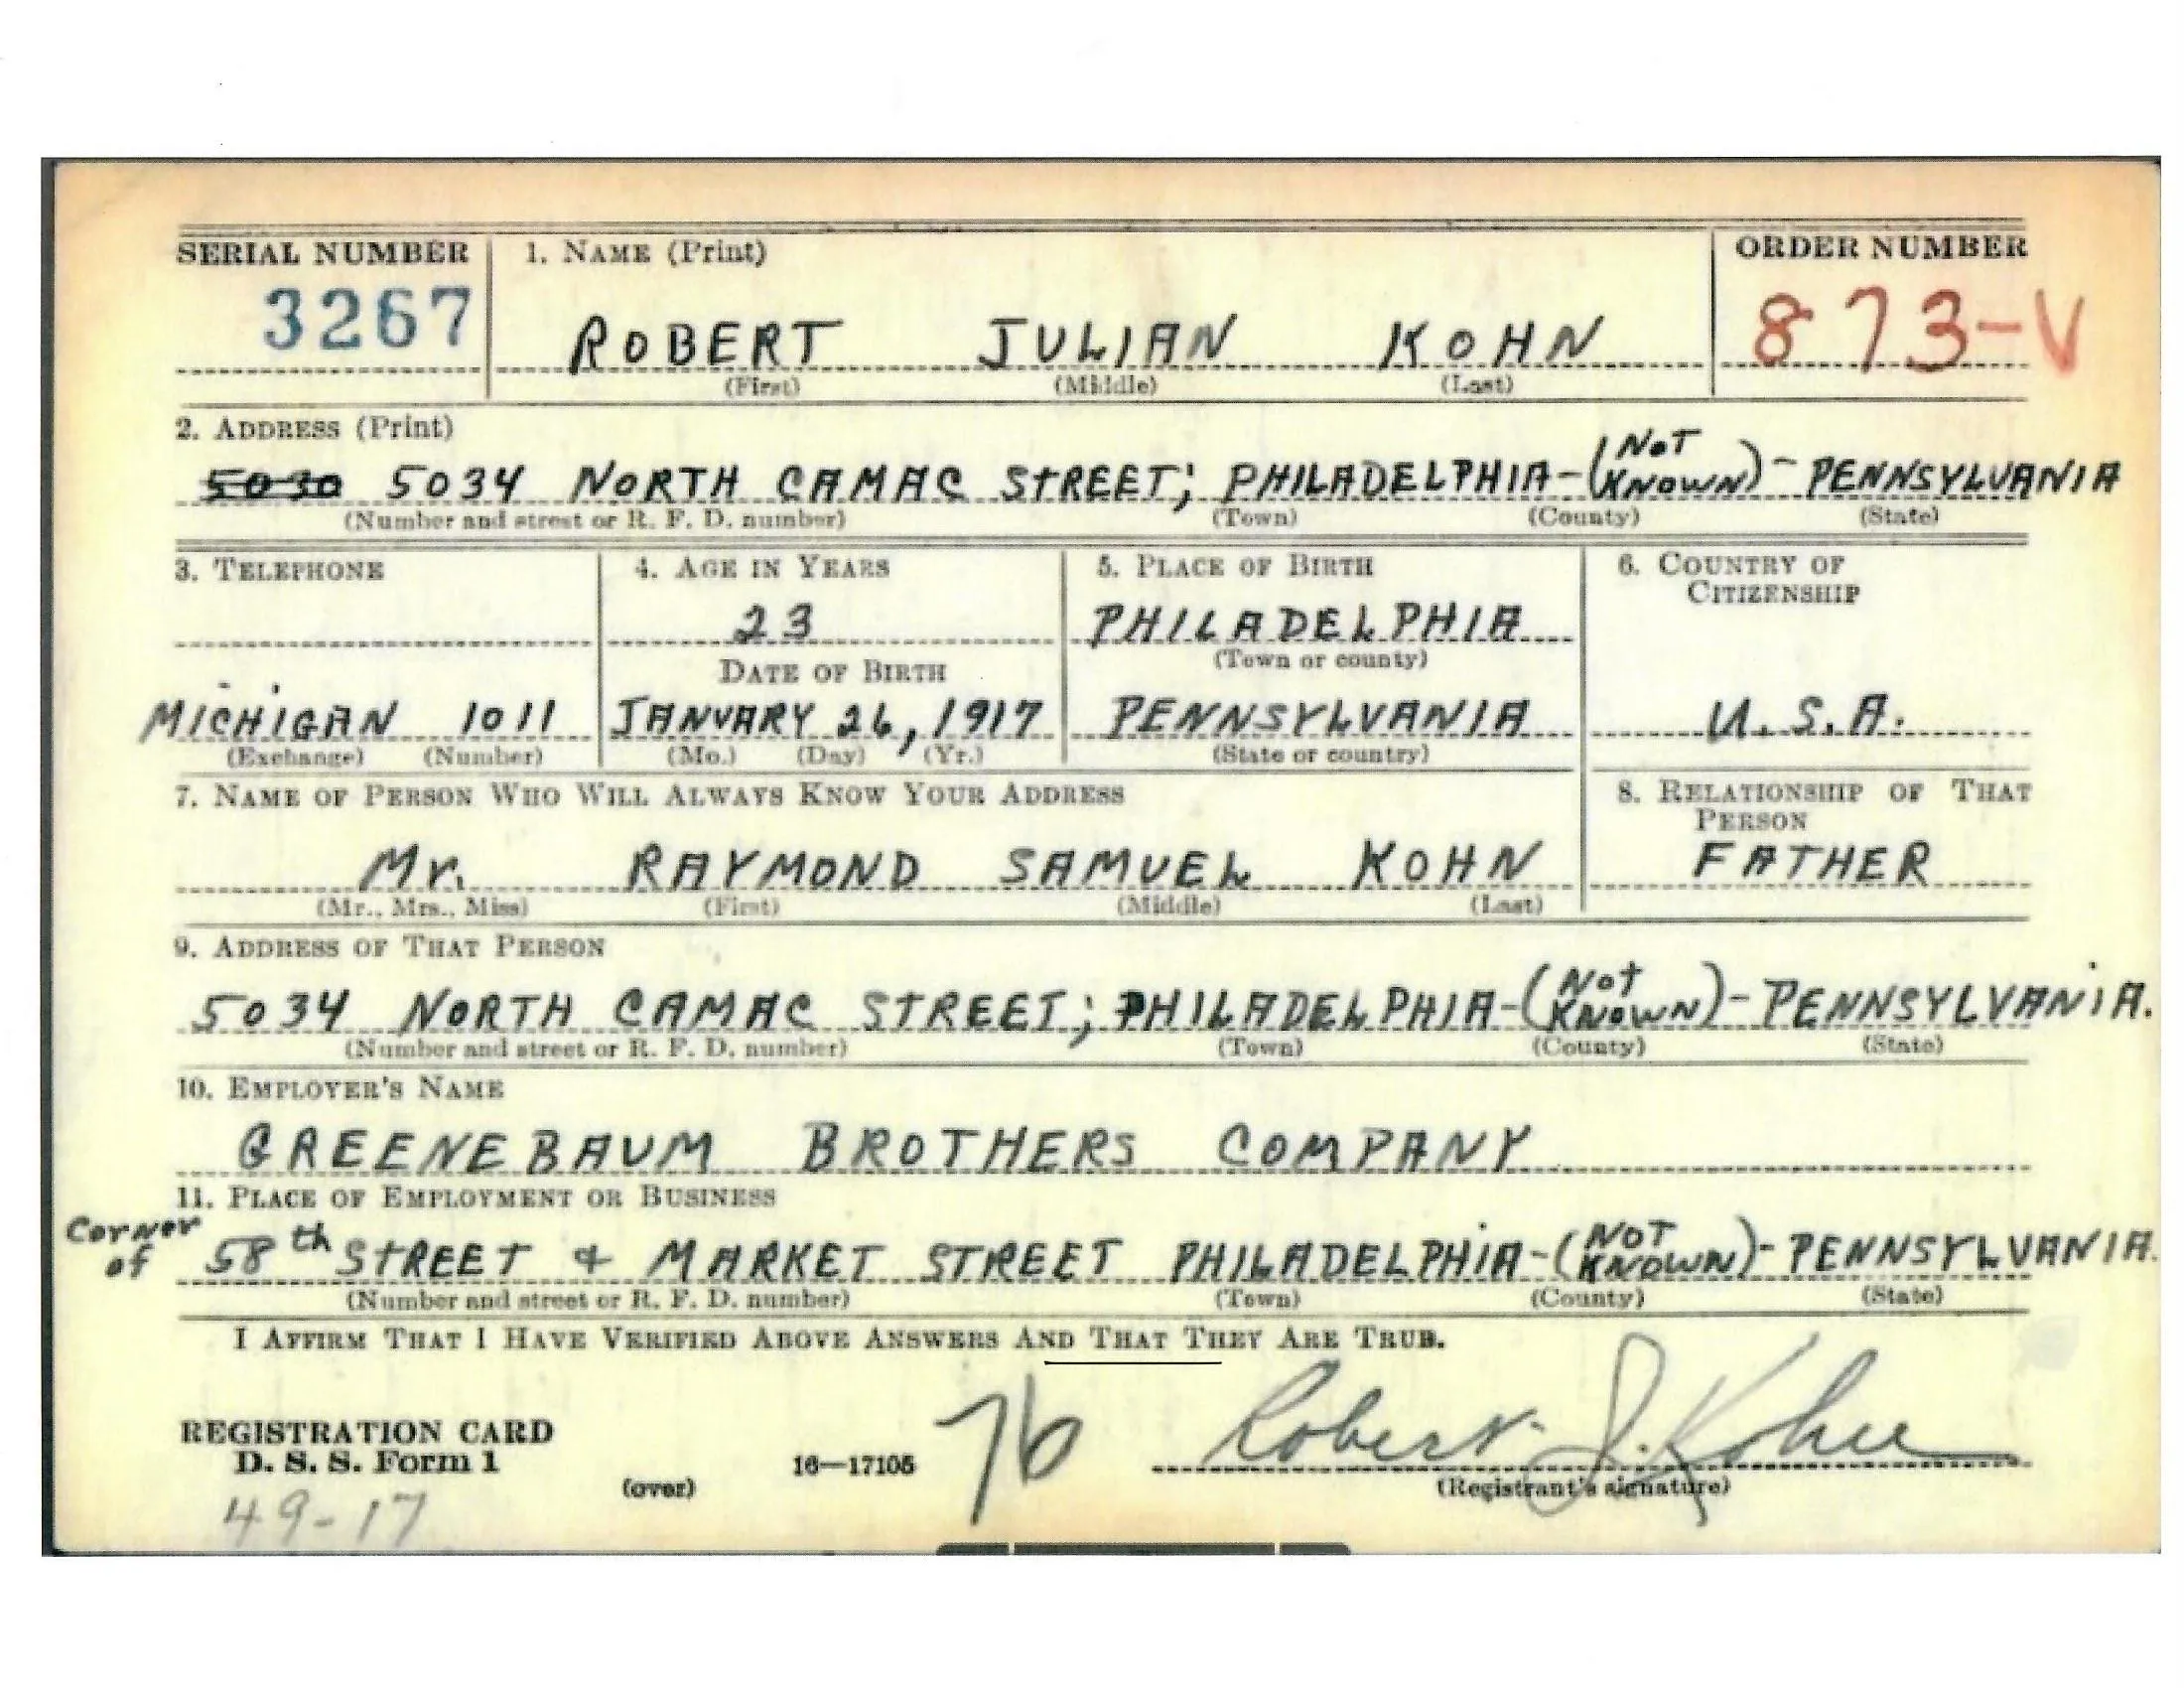 SERIAL NUMBER 1. NAME (Print) ORDER NUMBER
3267 ROBERT JULIAN KOHN 873-V
(First) (Middle) (Last)
2. ADDRESS (Print)
5030 5034 NORTH CAMAC STREET; PHILADELPHIA-(NOT KNOWN)- PENNSYLVANIA
(Number and street or R. F. D. number) (Town) (County) (State)
3. TELEPHONE 4. AGE IN YEARS 5. PLACE OF BIRTH 6. COUNTRY OF
CITIZENSHIP
23 PHILADELPHIA
DATE OF BIRTH (Town or county)
MICHIGAN 1011 JANUARY 26, 1917 PENNSYLVANIA U.S.A.
(Exchange) (Number) (Mo.) (Day) (Yr.) (State or country)
7. NAME OF PERSON WHO WILL ALWAYS KNOW YOUR ADDRESS 8. RELATIONSHIP OF THAT
PERSON
Mr. RAYMOND SAMUEL KOHN FATHER
(Mr., Mrs., Miss) (First) (Middle) (Last)
9. ADDRESS OF THAT PERSON
5034 NORTH CAMAC STREET; PHILADELPHIA-(NOT KNOWN)- PENNSYLVANIA.
(Number and street or R. F. D. number) (Town) (County) (State)
10. EMPLOYER'S NAME
GREENEBAUM BROTHERS COMPANY
11. PLACE OF EMPLOYMENT OR BUSINESS
Corner of 58th STREET & MARKET STREET PHILADELPHIA-(NOT KNOWN)- PENNSYLVANIA.
(Number and street or R. F. D. number) (Town) (County) (State)
I AFFIRM THAT I HAVE VERIFIED ABOVE ANSWERS AND THAT THEY ARE TRUE.
REGISTRATION CARD 76 Robert J. Kohn
D. S. S. Form 1 16—17105
(over) (Registrant's signature)
49-17